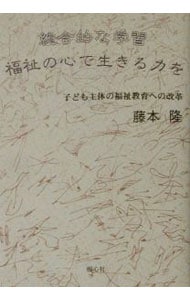 総合的な学習
福祉の心で生きる力を
子ども主体の福祉教育への改革
藤本 隆